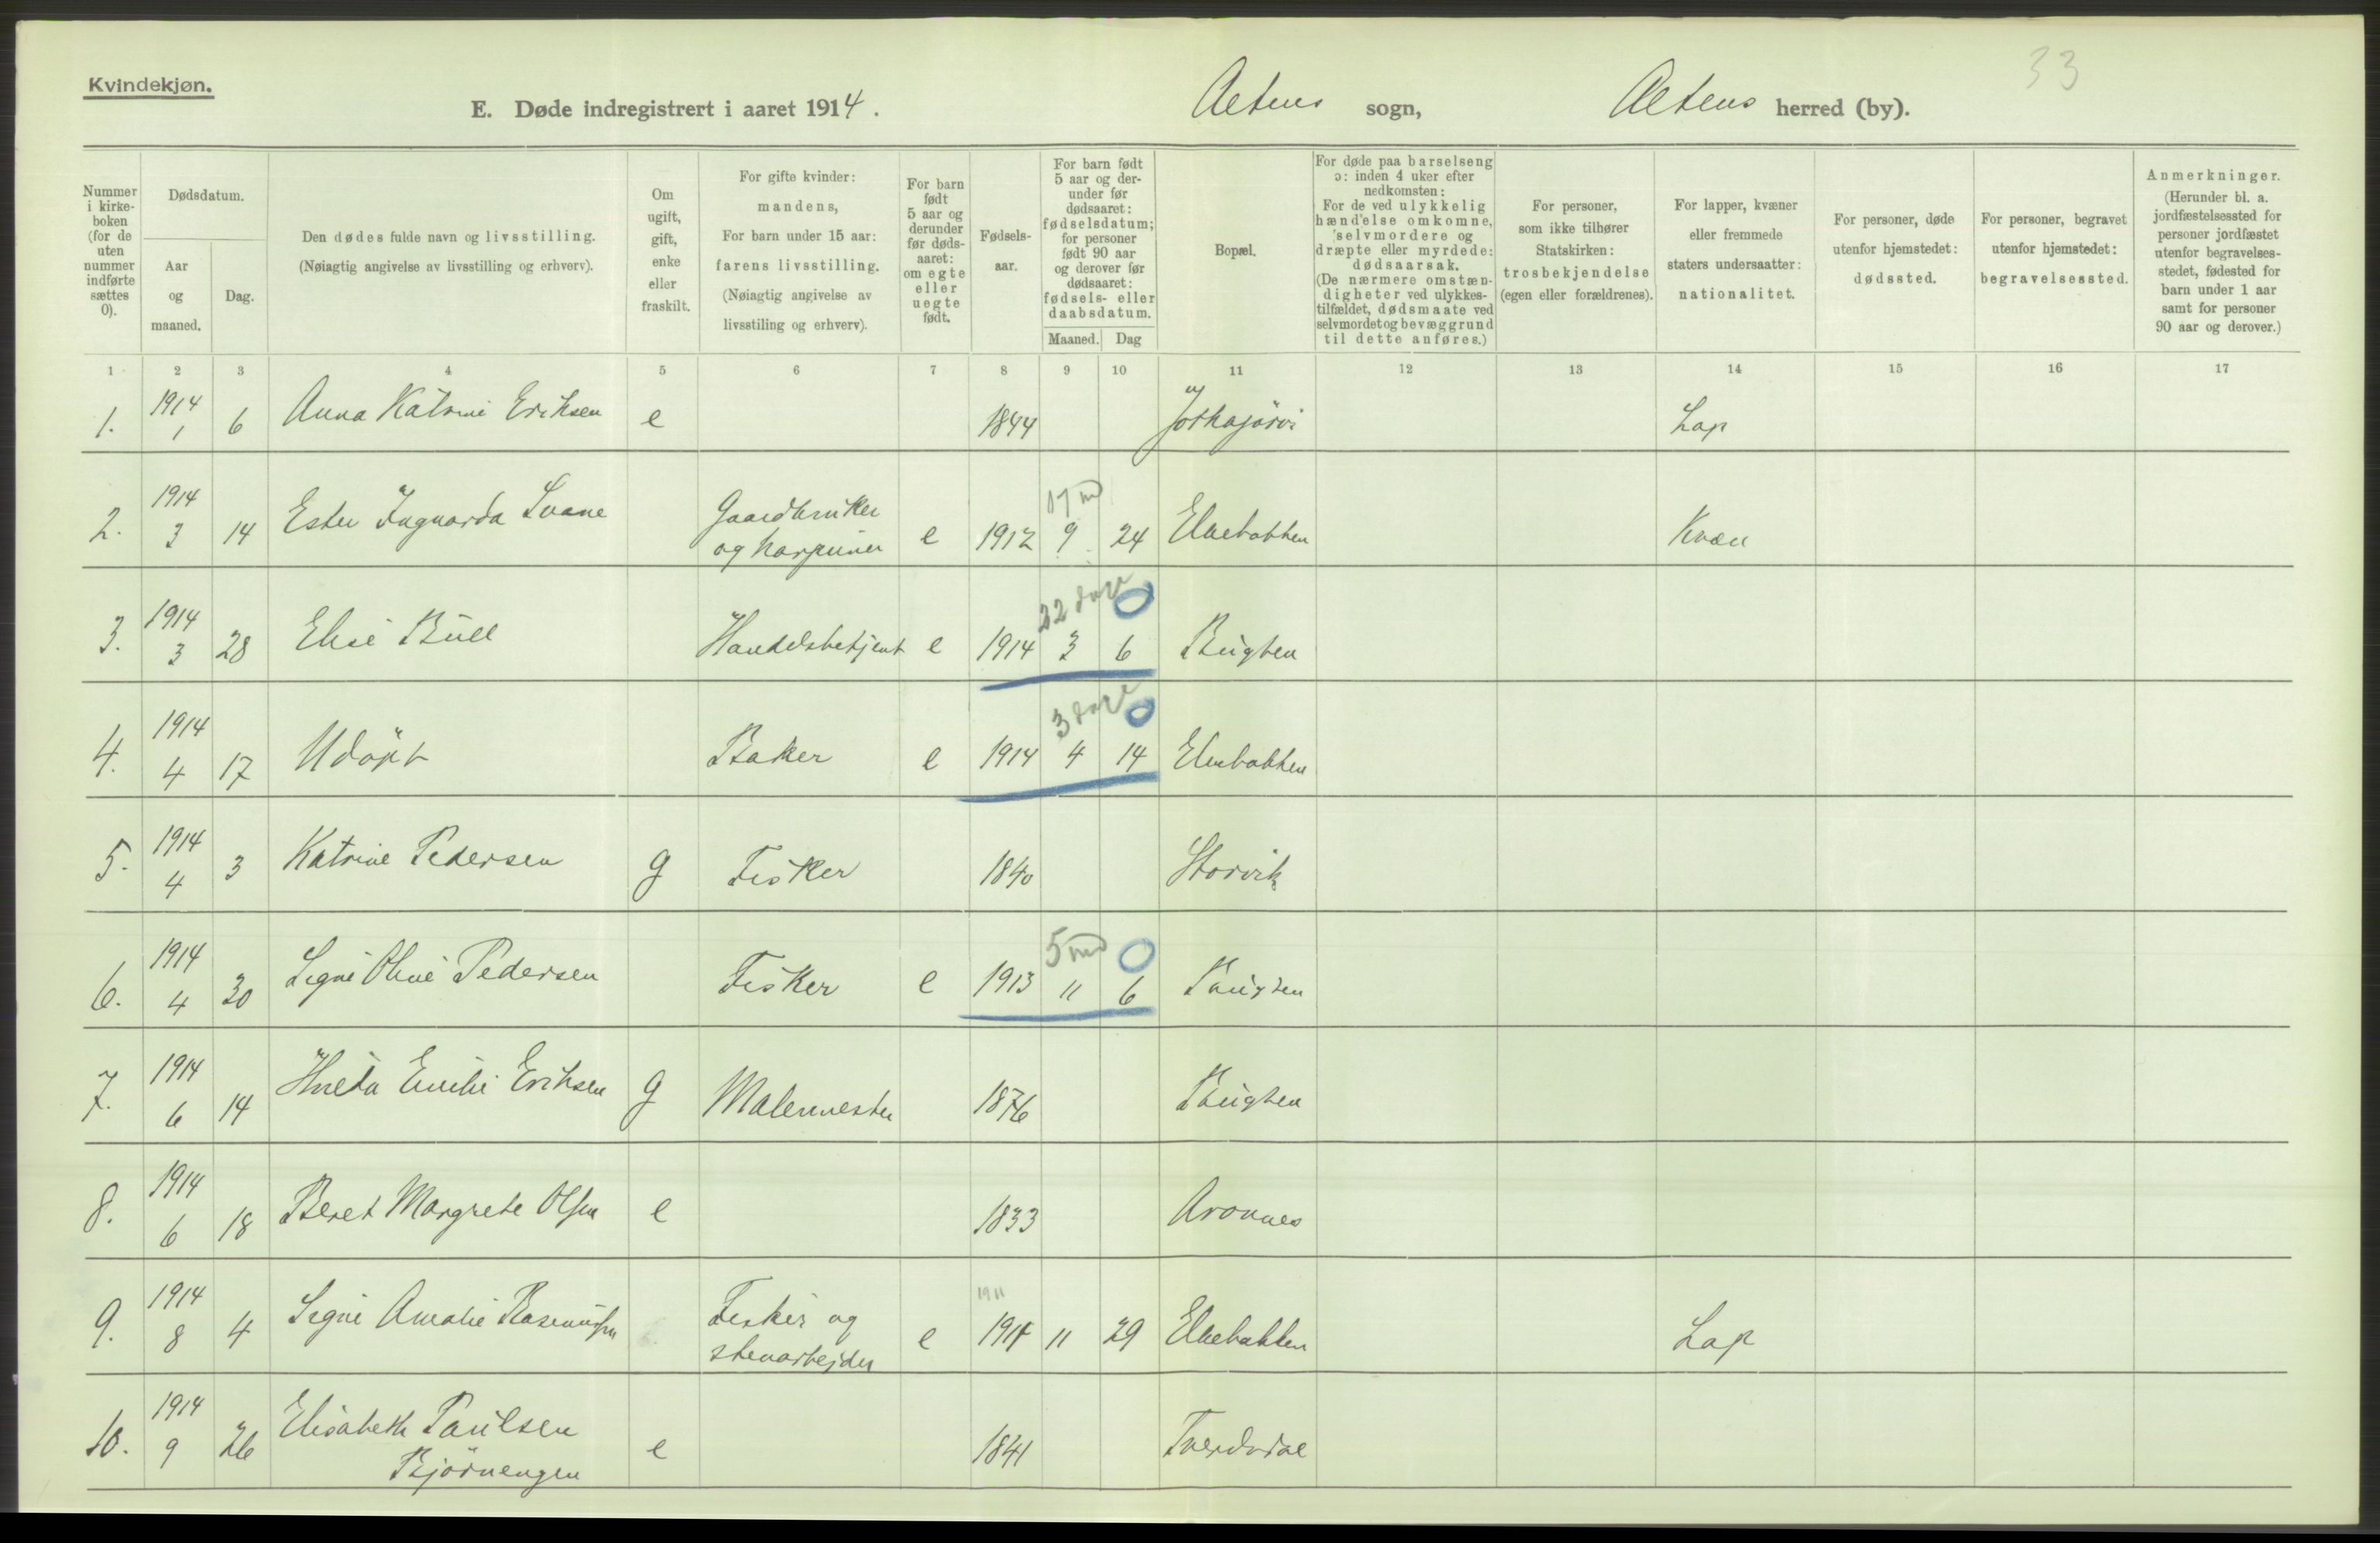 33
Kvindekjøn.
E. Døde indregistrert i aaret 1914. Altens sogn, Altens herred (by).
Nummer i kirke-boken (for de uten nummer indførte sættes 0).
Dødsdatum.
Aar og maaned.
Dag.
Den dødes fulde navn og livsstilling.
(Nøiagtig angivelse av livsstilling og erhverv).
Om ugift, gift, enke eller fraskilt.
For gifte kvinder: mandens,
For barn under 15 aar: farens livsstilling.
(Nøiagtig angivelse av livsstiling og erhverv).
For barn født 5 aar og derunder før døds-aaret: om egte eller uegte født.
Fødsels-aar.
For barn født 5 aar og der-under før dødsaaret: fødselsdatum; for personer født 90 aar og derover før dødsaaret: fødsels- eller daabsdatum.
Maaned. Dag
Bopæl.
For døde paa barselseng ɔ: inden 4 uker efter nedkomsten:
For de ved ulykkelig hændelse omkomne, selvmordere og dræpte eller myrdede: dødsaarsak.
(De nærmere omstæn-digheter ved ulykkes-tilfældet, dødsmaate ved selvmordet og bevæggrund til dette anføres.)
For personer, som ikke tilhører Statskirken: trosbekjendelse (egen eller forældrenes).
For lapper, kvæner eller fremmede staters undersaatter: nationalitet.
For personer, døde utenfor hjemstedet: dødssted.
For personer, begravet utenfor hjemstedet: begravelsessted.
Anmerkninger.
(Herunder bl. a. jordfæstelsessted for personer jordfæstet utenfor begravelses-stedet, fødested for barn under 1 aar samt for personer 90 aar og derover.)
1 2 3 4 5 6 7 8 9 10 11 12 13 14 15 16 17
1. 1914 1 6 Anna Katrine Eriksen e 1844 Jotkajärvi Lap
2. 1914 3 14 Ester Ingvarda Suane Gaardbruker og harpuner e 1912 17 md 9 24 Elvebakken Kvæn
3. 1914 3 28 Elise Bull Handelsbetjent e 1914 22 dage 3 6 0 Bugten
4. 1914 4 17 Udöpt Baker e 1914 3 dage 4 14 0 Elvebakken
5. 1914 4 3 Katrine Pedersen g Fisker 1840 Storvik
6. 1914 4 30 Signe Oline Pedersen Fisker e 1913 5 md 11 6 0 Bugten
7. 1914 6 14 Hulda Emilie Eriksen g Malermester 1876 Bugten
8. 1914 6 18 Beret Margrete Olsen e 1833 Aronnes
9. 1914 8 4 Signe Amalie Rasmussen Fisker og stenarbejder e 1911 1911 11 29 Elvebakken Lap
10. 1914 9 26 Elisabeth Paulsen Björnengen e 1841 Tverdvdal